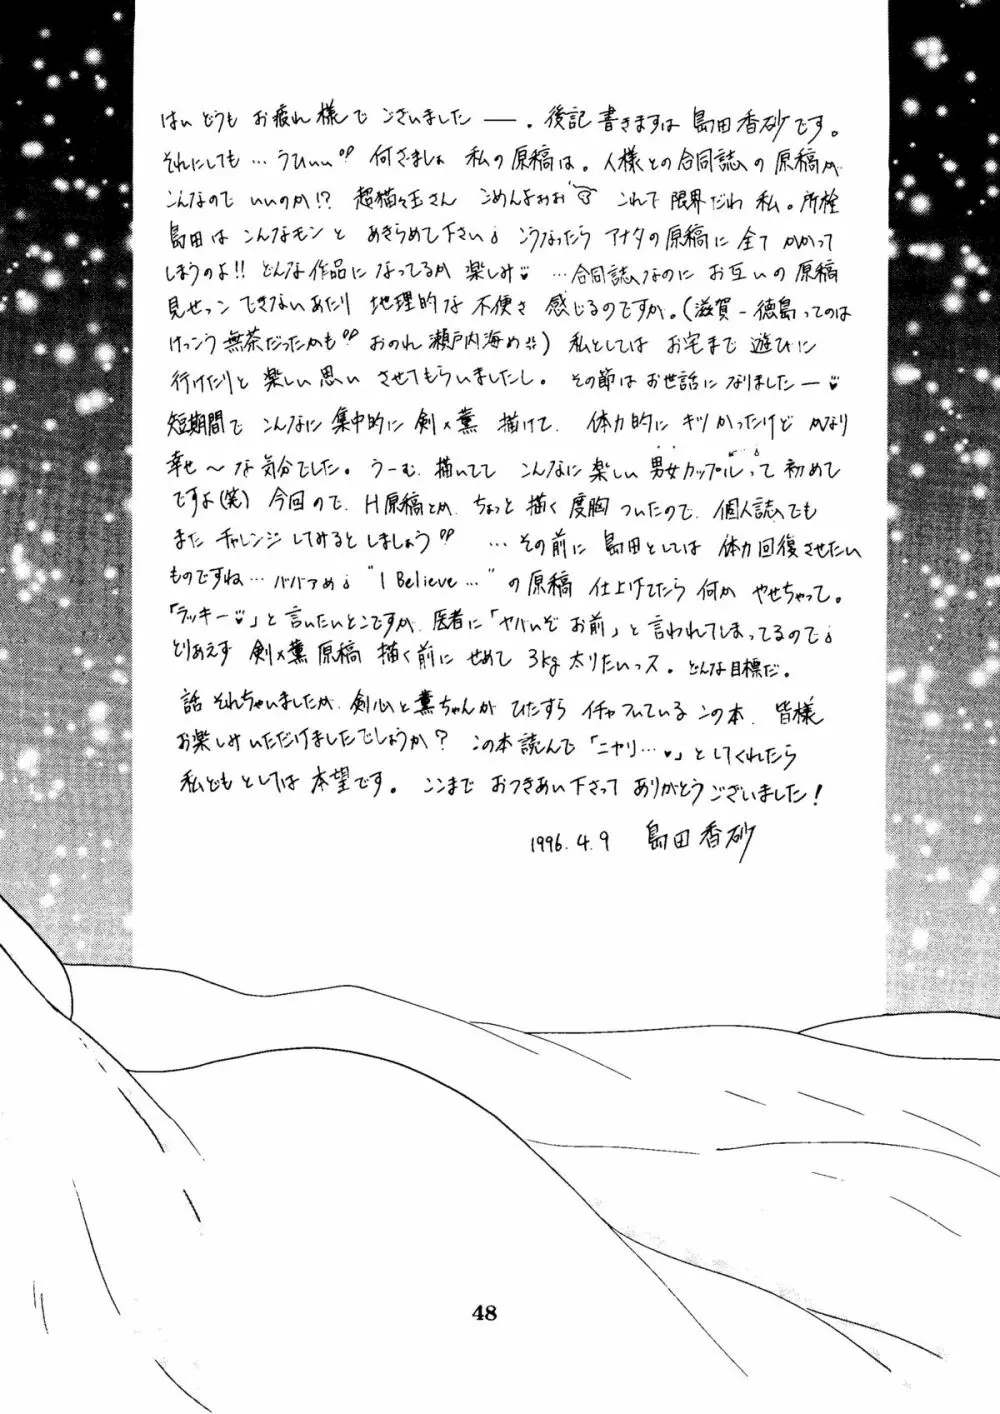 はい どうも お疲れ様で ございました ――。後記 書きますは 島田香砂です。
それにしても… うひぃぃ 何さましょ 私の原稿は。人様との合同誌の原稿が
こんなので いいのか!? 超猫々玉さん ごめんよぉぉ これで 限界だわ 私。所詮
島田は こんなモンと あきらめて下さい♩ こうなったら アナタの原稿に 全て かかって
しまうのよ!! どんな作品に なってるか 楽しみ♥ …合同誌なのに お互いの 原稿
見せっこ できないあたり 地理的な 不便さ 感じるのですが。(滋賀－徳島ってのは
けっこう 無茶だったかも おのれ 瀬戸内海め) 私としては お宅まで 遊びに
行けたりと 楽しい思い させてもらいましたし。その節は お世話に なりましたー♥
短期間で こんなに 集中的に 剣×薫 描けて、体力的に キツかったけど かなり
幸せ～な気分でした。うーむ、描いてて こんなに 楽しい 男女カップルって 初めて
ですよ(笑) 今回ので、H原稿とか、ちょっと 描く 度胸 ついたので、個人誌でも
また チャレンジ してみると しましょう …その前に 島田としては 体力回復させたい
ものですね… ババァめ♩ "I Believe…"の原稿 仕上げてたら 何か やせちゃって。
「ラッキー♥」と 言いたいとこですが、医者に「ヤバいぞ お前」と 言われてしまってるので♩
とりあえず 剣×薫 原稿 描く前に せめて 3kg 太りたいっス。どんな目標だ。
話 それちゃいましたが、剣心と 薫ちゃんが ひたすら イチャついている この本、皆様
お楽しみいただけましたでしょうか? この本読んで「ニヤリ…♥」と してくれたら
私どもとしては 本望です。ここまで おつきあい下さって ありがとうございました!
1996.4.9 島田香砂
48